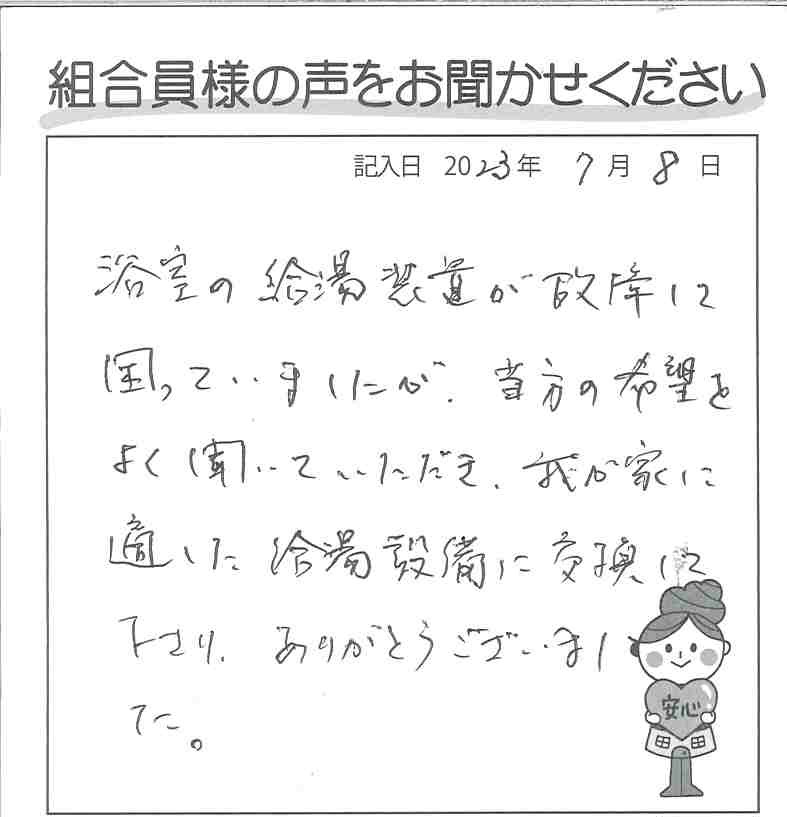 組合員様の声をお聞かせください
記入日 2023年 7月 8日
浴室の給湯装置が故障して
困っていましたが、当方の希望を
よく聞いていただき、我が家に
適した給湯設備に交換して
下さり、ありがとうございまし
た。
安心